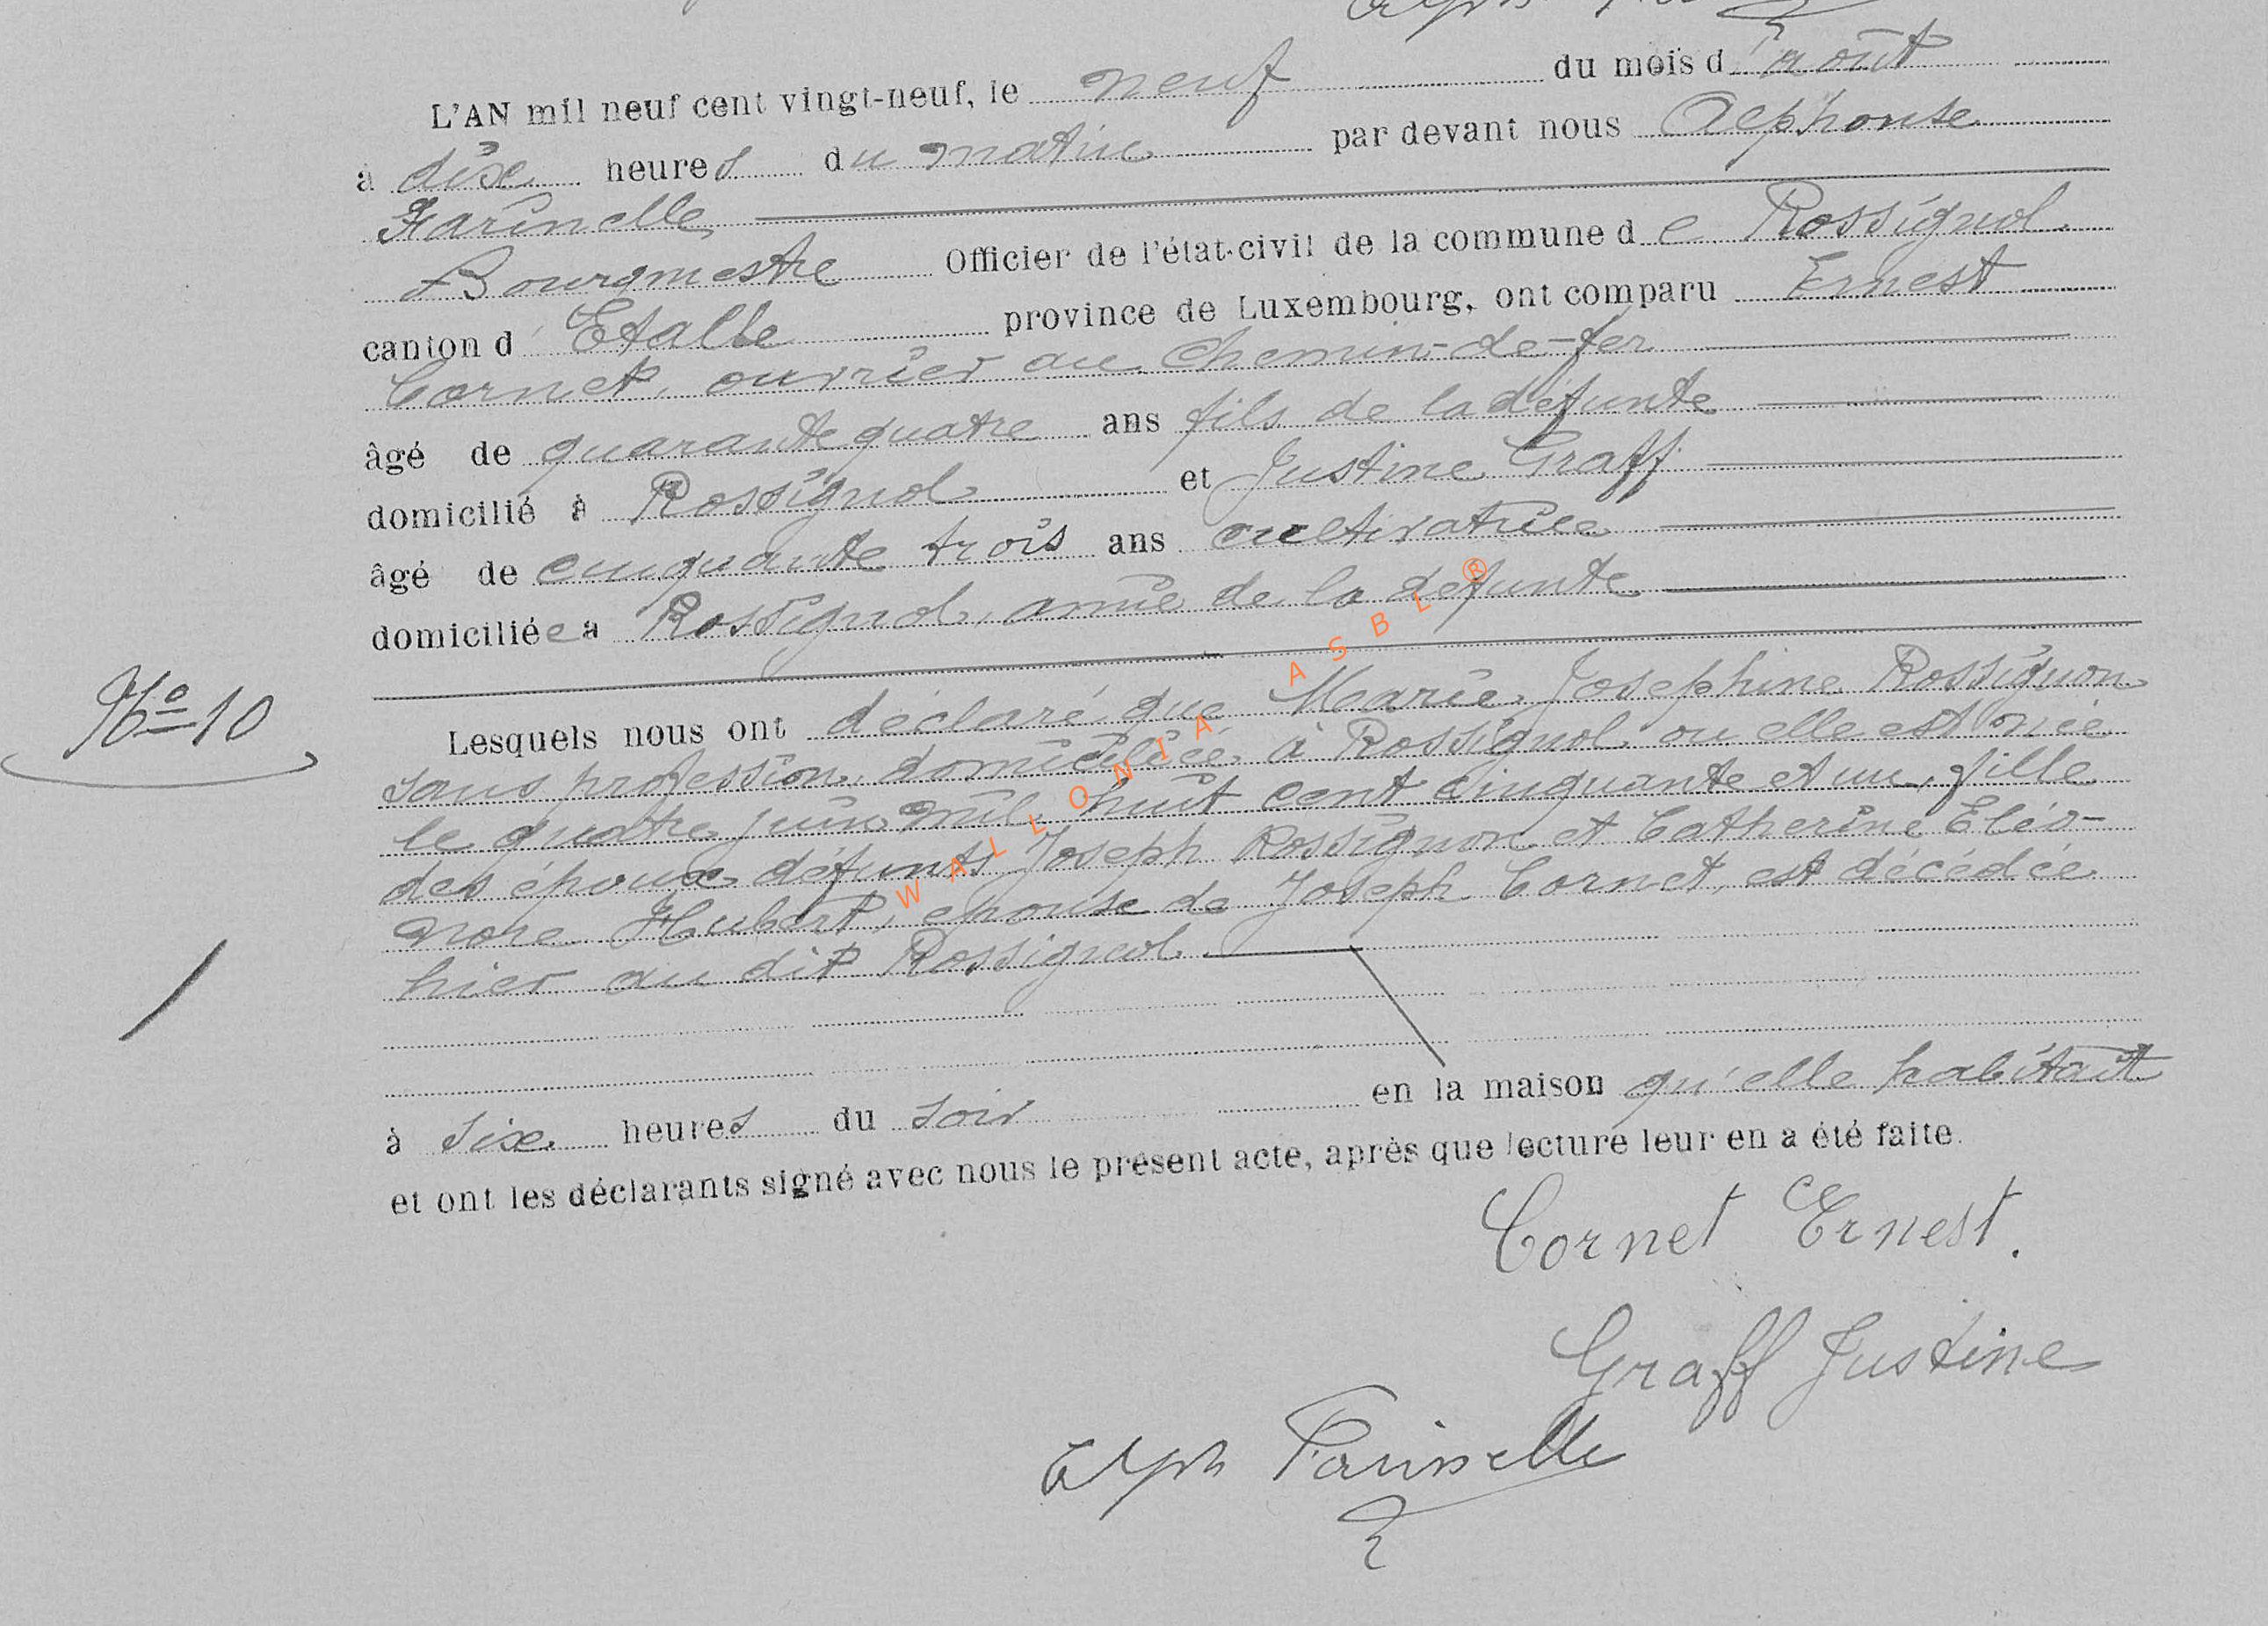 L'AN mil neuf cent vingt-neuf, le neuf du mois d'août
à dix heures du matin par devant nous Alphonse
Farinelle
Bourgmestre Officier de l'état-civil de la commune de Rossignol
canton d'Etalle province de Luxembourg, ont comparu Ernest
Cornet, ouvrier au chemin-de-fer
âgé de quarante quatre ans fils de la défunte
domicilié à Rossignol et Justine Graff
âgé de cinquante trois ans cultivatrice
domiciliée a Rossignol, amie de la defunte
No 10
Lesquels nous ont déclaré que Marie Josephine Rossignon
sans profession, domiciliée à Rossignol ou elle est née
le quatre juin mil huit cent cinquante et un, fille
des époux défunts Joseph Rossignon et Catherine Eléo-
nore Hubert, epouse de Joseph Cornet, est décédée
hier au dit Rossignol
à six heures du soir en la maison qu'elle habitait
et ont les déclarants signé avec nous le présent acte, après que lecture leur en a été faite.
Cornet Ernest.
Graff Justine
Alph Farinelle
WALLONIA ASBL ®